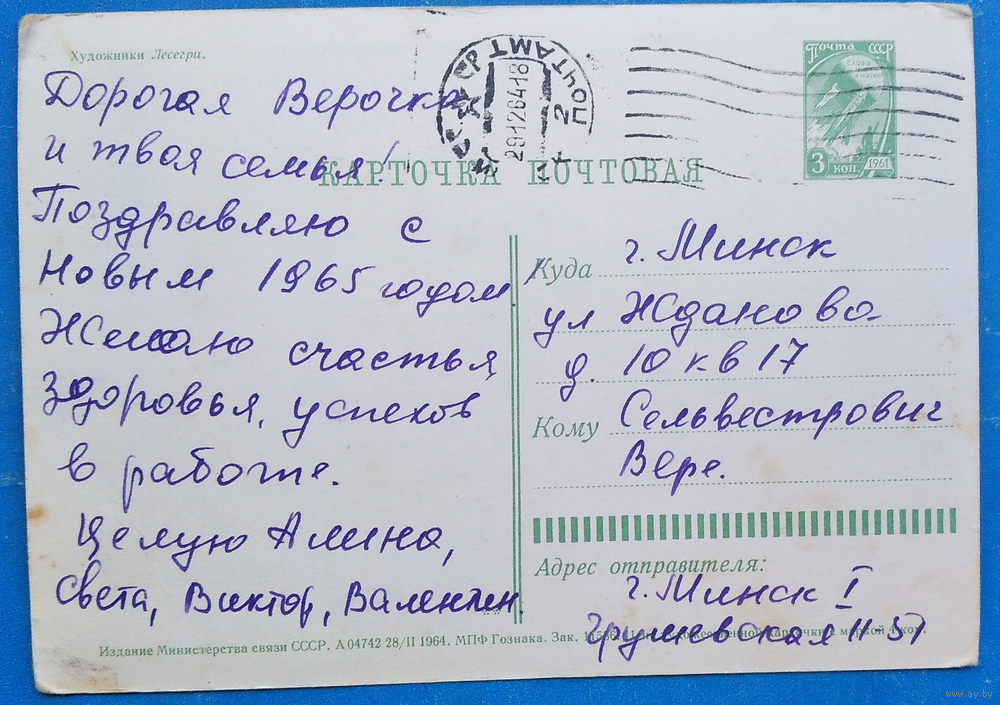 Художники Лесегри.
Дорогая Верочка
и твоя семья!
Поздравляю с
Новым 1965 годом
Желаю счастья,
здоровья, успехов
в работе.
Целую Алина,
Света, Виктор, Валентин.
Издание Министерства связи СССР. А 04742 28/II 1964. МПФ Гознака. Зак.
ПОЧТАМТ
29126418
Почта СССР
Слава
3 коп. 1961
КАРТОЧКА ПОЧТОВАЯ
Куда г. Минск
ул Жданова
д. 10 кв 17
Кому Сельвестрович
Вере.
Адрес отправителя:
г. Минск I
Грушевская 11-57
www.ay.by